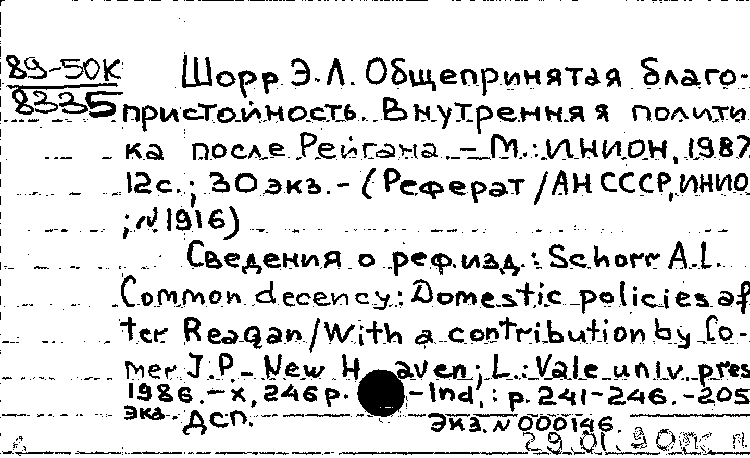 89-50К Шорр Э.Л. Общепринятая благо-
8335 пристойность. Внутренняя полити
ка после Рейгана. – М.: ИНИОН, 1987
12с.; 30 экз. – (Реферат / АН СССР, ИНИО
; N 1916)
Сведения о реф.изд.: Schorr A.L.
Common decency: Domestic policies af
ter Reagan / With a contribution by Co-
mer J.P. – New H aven; L.: Vale univ. pres
1986. – x, 246 p. – Ind.: p. 241-246. – 205
экз. ДСП. Экз. N 000146.
29.01.90